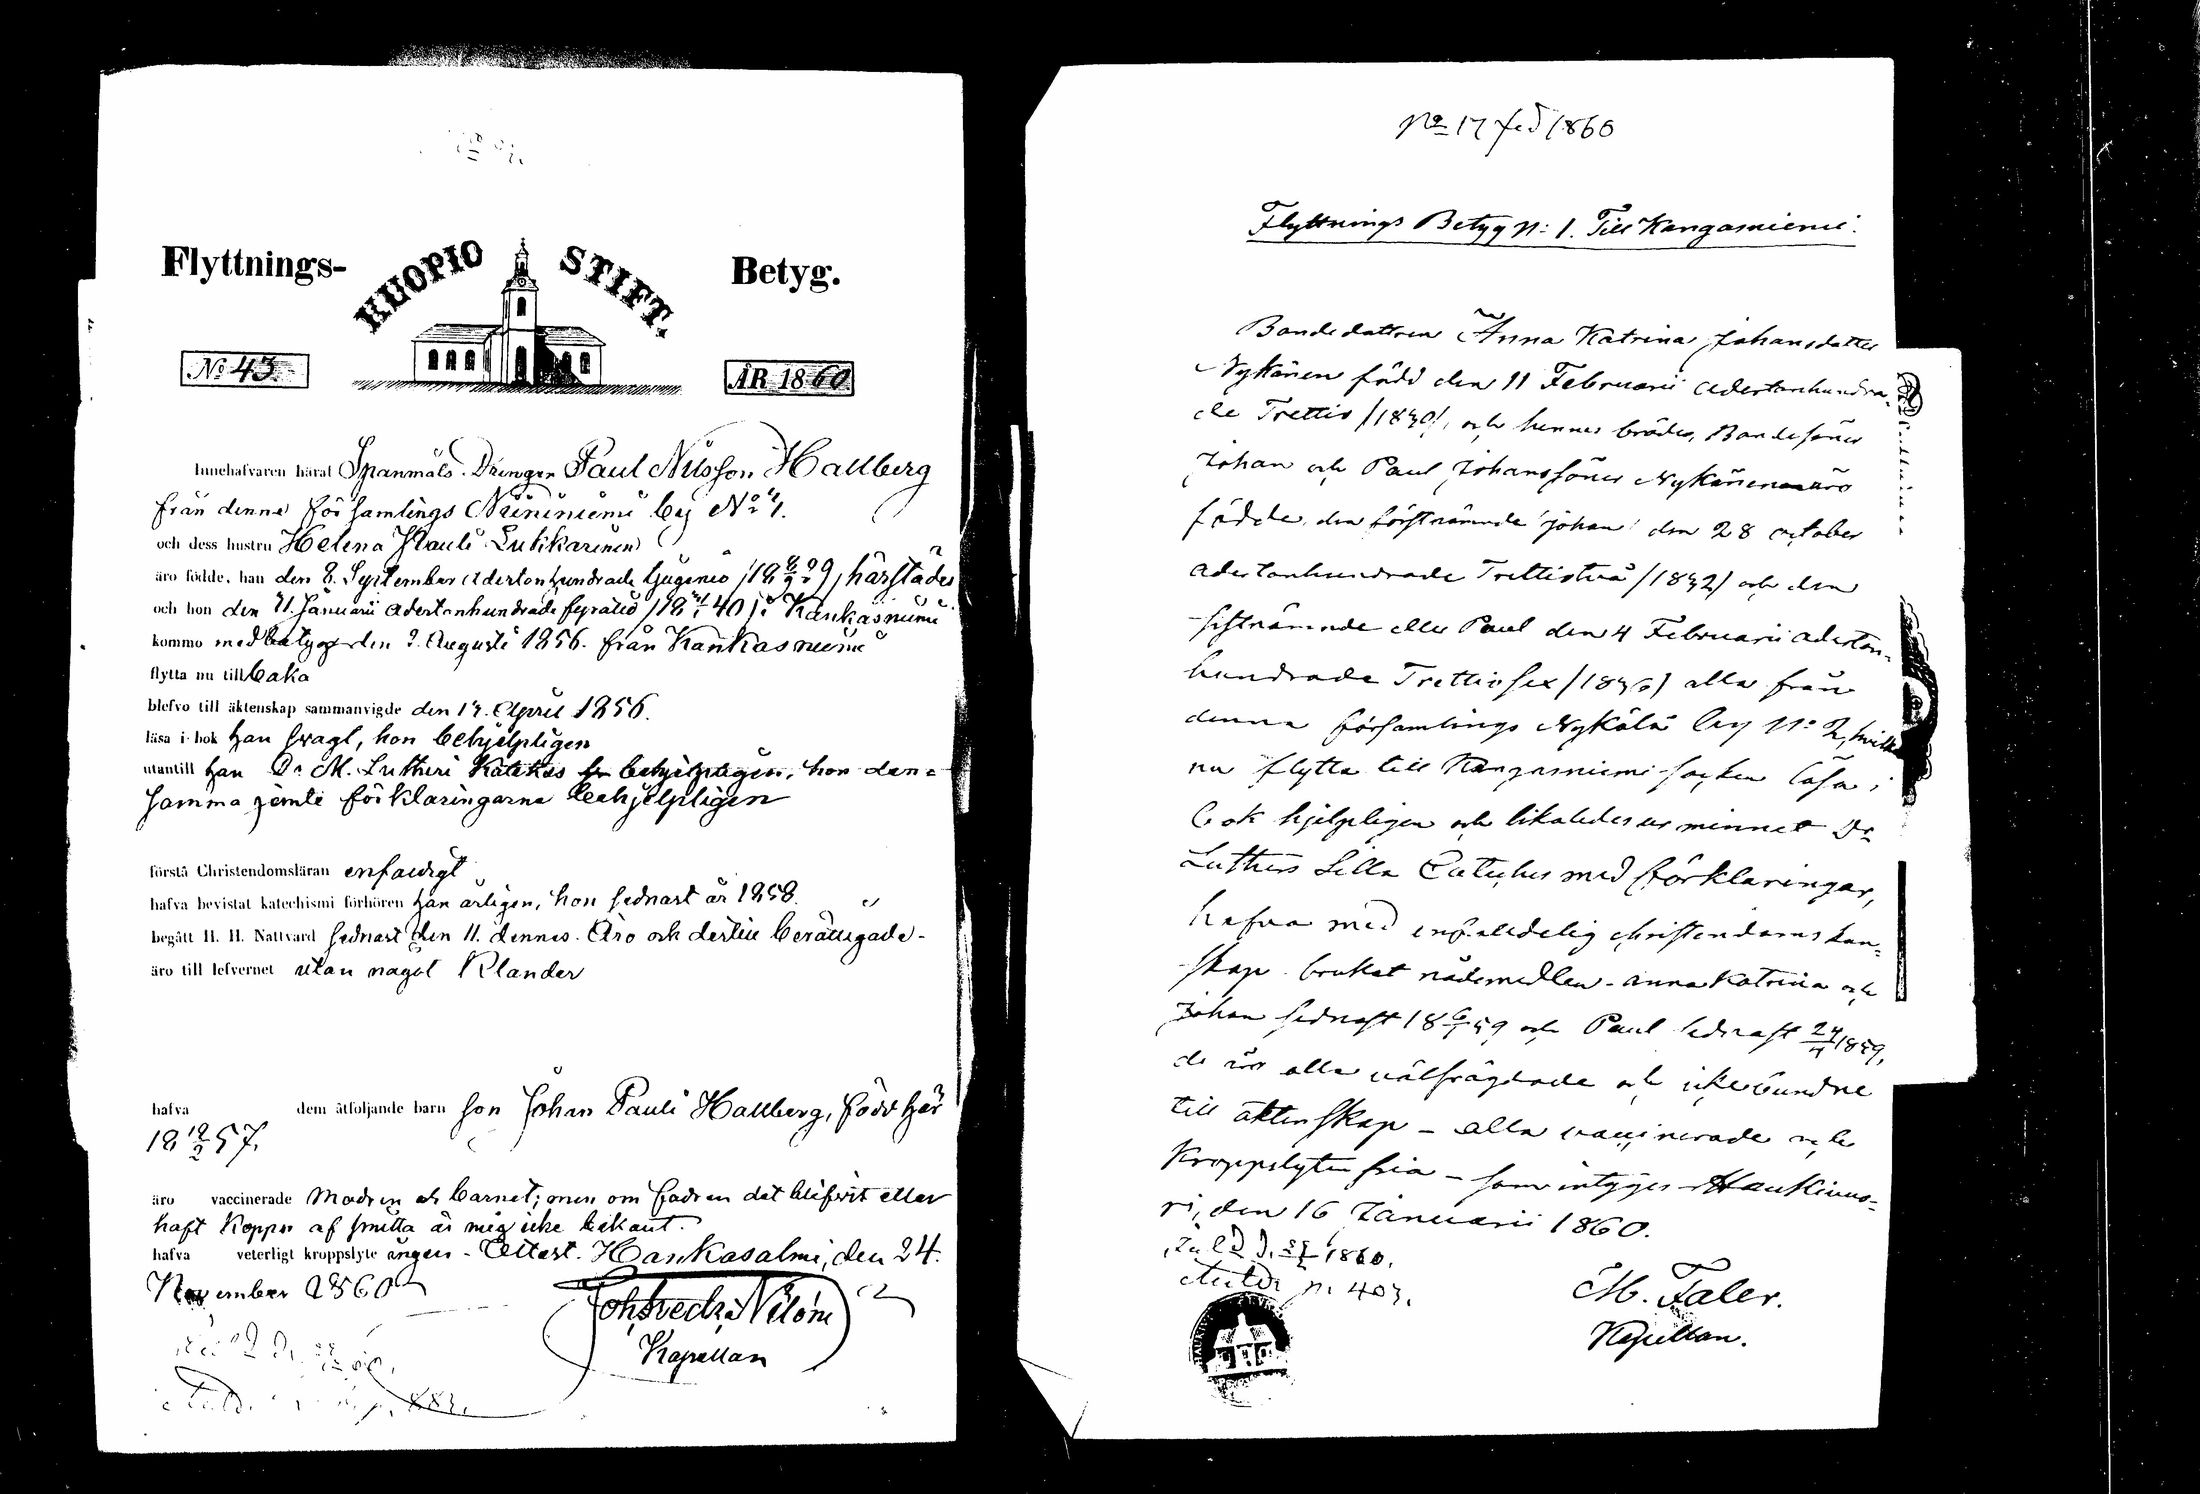 Flyttnings-
KUOPIO STIFT.
Betyg.
No 43.
ÅR 1860
Innehafvaren härat Spanmåls Drengen Paul Nilsson Hallberg
från denne församlings Niininiemi by No 4.
och dess hustru Helena Pauli Lukkarinen
äro födde, han den 8. September Adertonhundrade tjugonio /18 8/9 29/ härstädes
och hon den 21 Januarii Adertonhundrade fyratio /18 21/1 40/ i Kankasniemi
kommo med betyg den 2. Augusti 1856. från Kankasniemi
flytta nu tillbaka
blefvo till äktenskap sammanvigde den 13. April 1856.
läsa i bok han svagt, hon behjelpligen
utantill han Dr M. Lutheri Katekes behjelpligen, hon den=
samma jemte förklaringarna behjelpligen
förstå Christendomsläran enfaldigt
hafva bevistat katechismi förhören han årligen, hon sednast år 1858.
begått H. H. Nattvard sednast den 11. dennes. Äro och dertill berättigade-
äro till lefvernet utan något Klander
hafva dem åtföljande barn son Johan Pauli Hallberg, född här
18 12/2 57.
äro vaccinerade Modren och barnet; men om fadren det blifvit eller
haft Koppor af smitta är mig icke bekant.
hafva veterligt kroppslyte ingen - Attest. Hankasalmi, den 24.
November 1860
Kapellan
No 17 fed 1860
Flyttnings Betyg N: 1. Till Kangasniemi.
Bondedottren Anna Katrina Johansdotter
Nykänen född den 11 Februarii adertonhundra-
de Trettio /1830/, och hennes bröder, Bondesöner
Johan och Paul Johanssöner Nykänen äro
födde, den förstnämnde Johan den 28 october
adertonhundrade Trettiotvå /1832/ och den
sistnämnde eller Paul den 4 Februarii aderton-
hundrade Trettiosex /1836/ alla från
denna församlings Nykälä by No 2, hvilka
nu flytta till Kangasniemi socken läsa i
bok hjelpligen och likaledes ur minnet Dr
Luthers Lilla Cateches med förklaringar,
hafva med enfaldelig christendoms kun-
skap brukat nådemedlen - Anna Katrina och
Johan sednast 18 6/1 59 och Paul sednast 24/4 1859,
de äro alla välfrägdade och icke bundne
till äktenskap - alla vaccinerade och
Kroppslyten fria - som intygas Haukivuo-
ri, den 16 Januarii 1860.
1860.
N. 403.
M. Taler.
Kapellan.